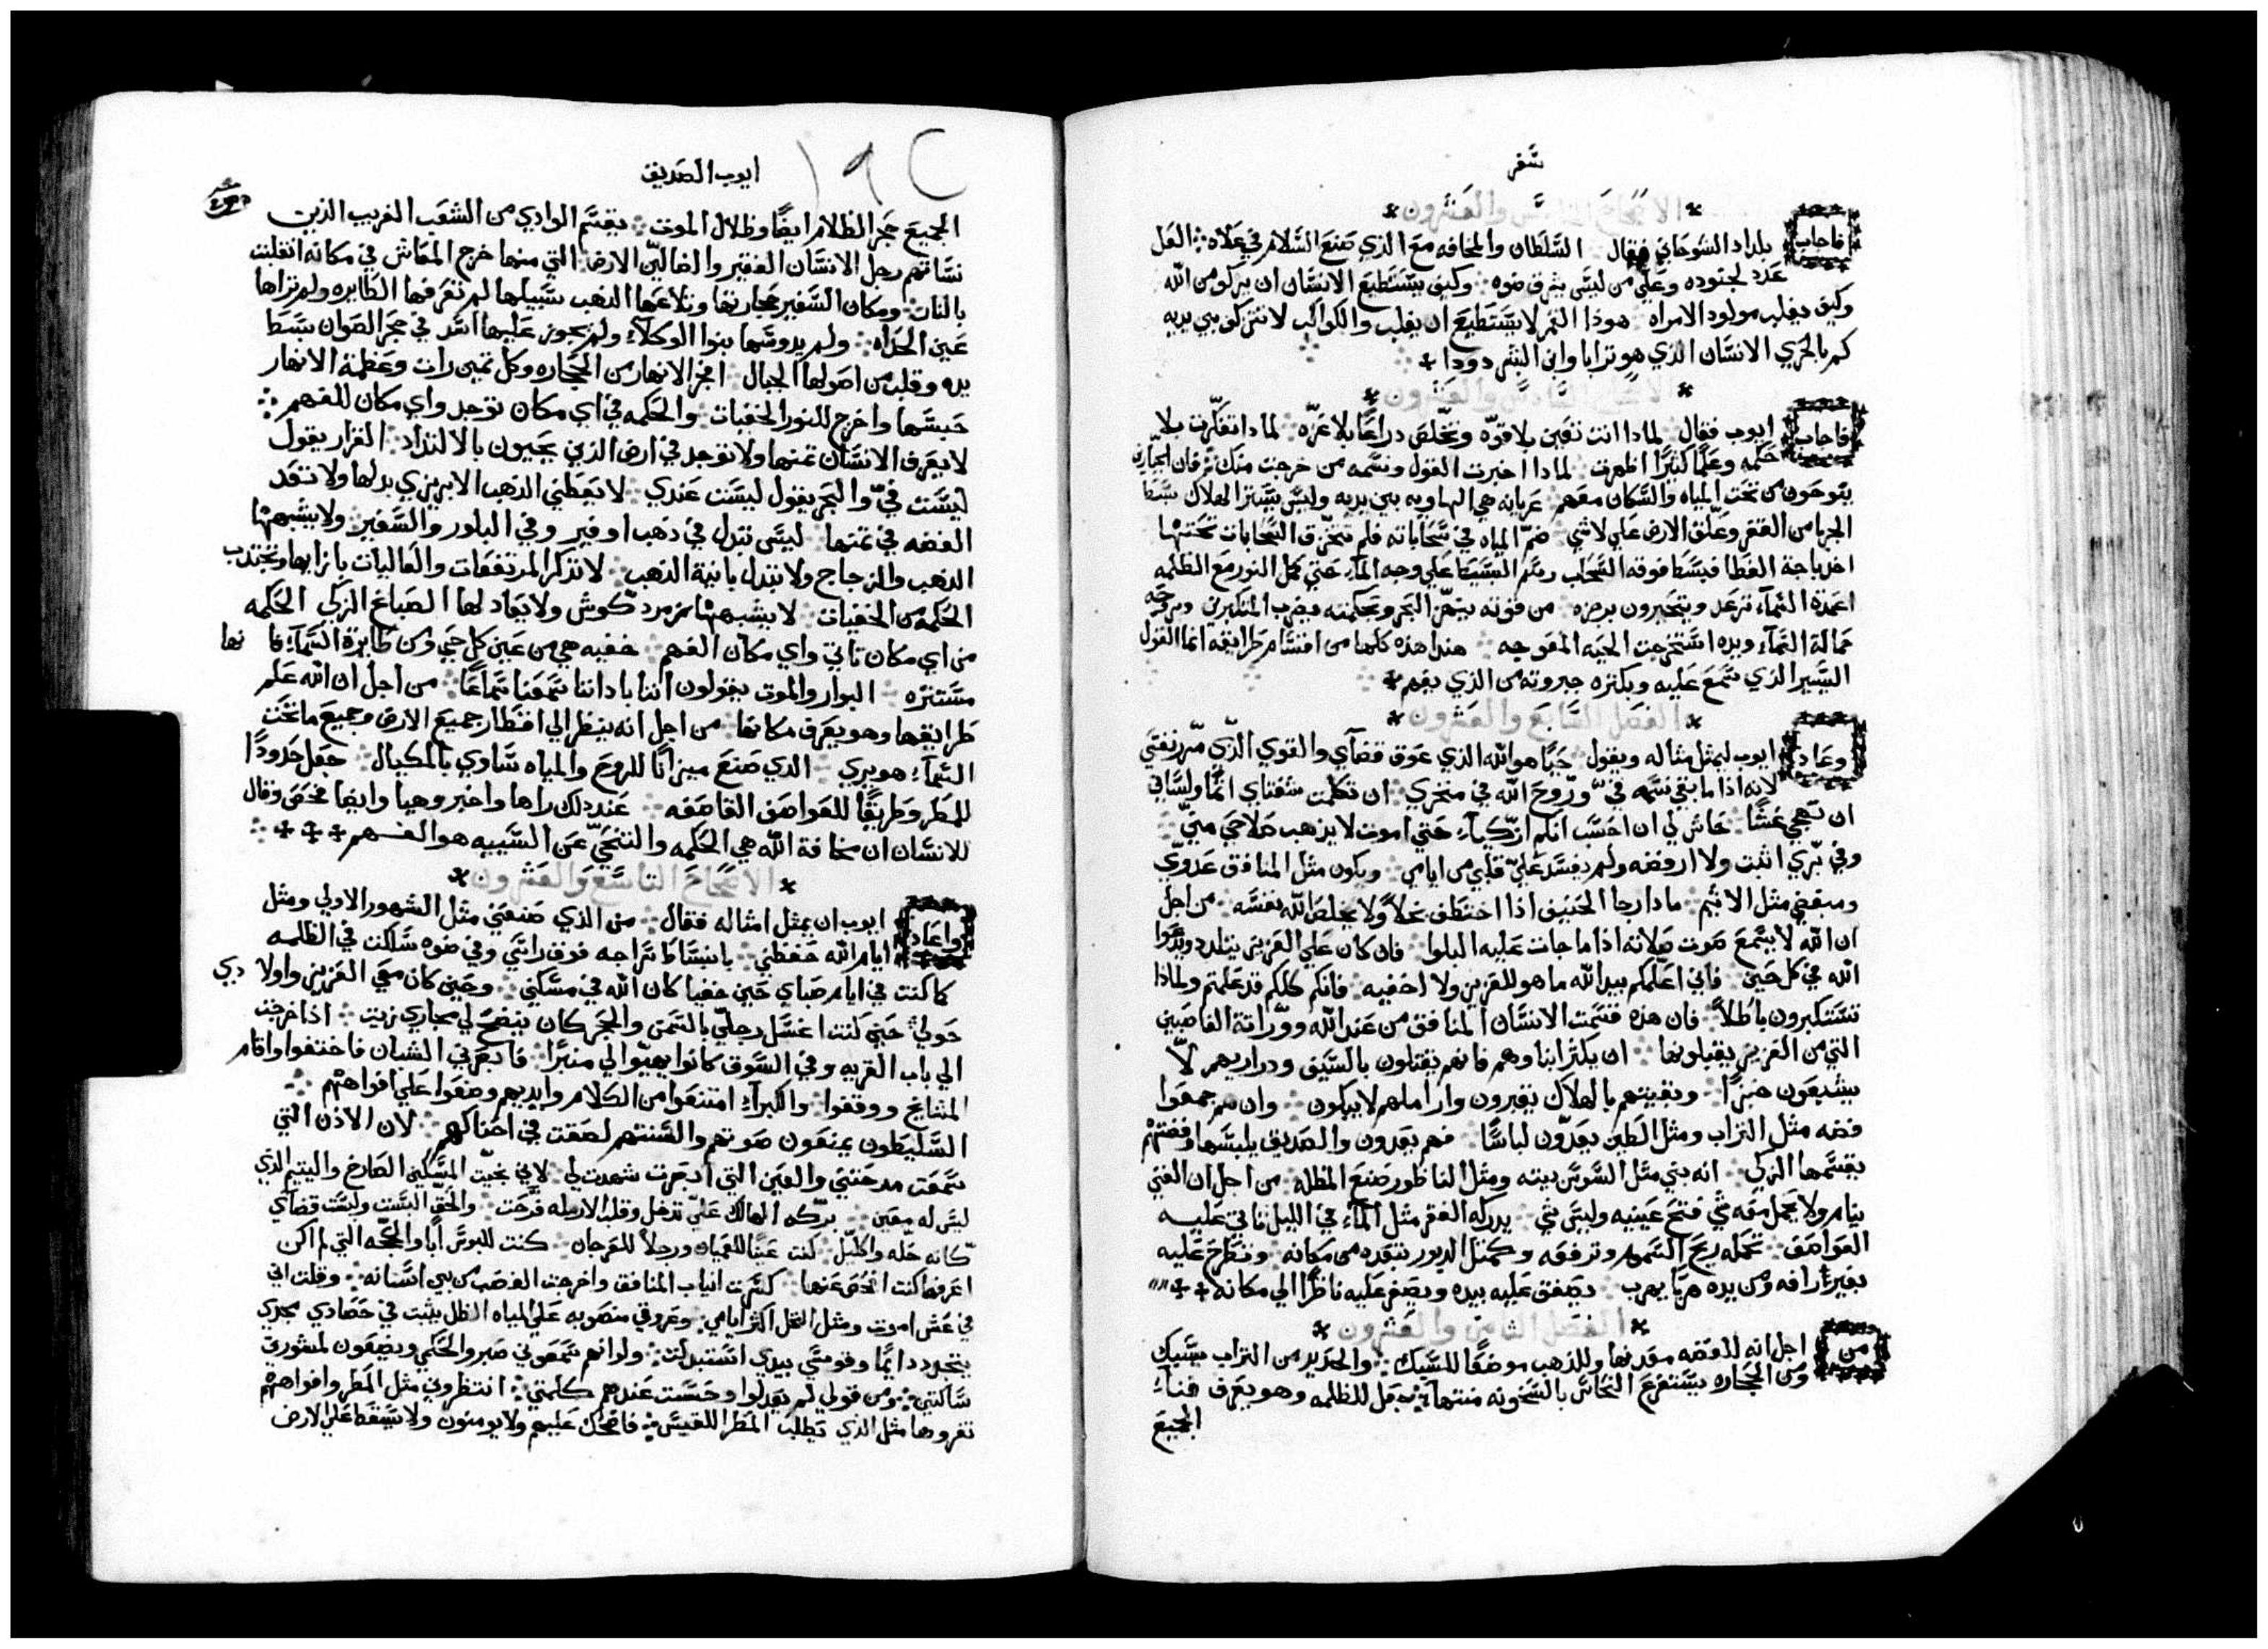 سفر
الاصحاح الخامس والعشرون
فاجاب بلداد الشوحاني فقال السلطان والمخافه مع الذي صنع السلام في علاه العل
عدد لجنوده وعلي من ليس يشرق ضوه وكيف يستطيع الانسان ان يزكو من الله
وكيف يفلب مولود الامراه هوذا القمر لا يستطيع ان يغلب والكواكب لا تتزكو بين يديه
كم بالحري الانسان الذي هو ترابا وابن البشر دودا
الاصحاح السادس والعشرون
فاجاب ايوب فقال لماذا انت تعين بلا قوه وتخلص دراعا بلا عزه لماذا تفكرت بلا
حكمه وعلما كثيرا اظهرت لماذا اخبرت القول ونسمه من خرجت منك ترقان الجباره
يتوحون من تحت المياه والسكان معهم عريانه هي الهاويه بين يديه وليس يستر الهلاك بسط
الجربا من القفر وعلق الارض علي لا شي ضم المياه في سحاباته فلم تتخرق السحابات تحتها
اخذ باجة الغطا فبسط فوقه السحاب رسم البسيط علي وجه الماء حتي كمل النور مع الظلمه
اعمدة السماء ترعد ويتحيرون برجزه من قوته يتهز البحر وبحكمته يضرب المتكبرين وبروحه
جمالة السماء ويده استخرجت الحيه المعوجه هذا هذه كلها من اقسام طرايقه انما القول
اليسير الذي نسمع عليه وبكثره جبروته من الذي يفهم
الفصل السابع والعشرون
وعاد ايوب ليمثل مثاله ويقول حيا هو الله الذي عوق قضاي والقوي الذي مررنفسي
لانه اذا ما بقي نسمه في وروح الله في منخري ان تكلمت شفتاي اثما ولساني
ان تهجي غشا حاش لي ان احسب انكم ازكياء حتي اموت لا يذهب صلاحي مني
وفي بري اثبت ولا ارفضه ولم يفسد علي قلبي من ايامي ويكون مثل المنافق عدوي
ومبغضي مثل الاثيم ماذا رجا الحنيف اذا اختطف بخلا ولا يخلص الله نفسه من اجل
ان الله لا يسمع صوت صلاته اذا ما جات عليه البلوا فان كان علي العزيز يتلدد ويدعوا
الله في كل حين فاني اعلمكم بيد الله ما هو للعزيز ولا اخفيه فانكم كلكم قد علمتم ولماذا
تستكبرون باطلا فان هذه قسمت الانسان المنافق من عند الله ووراثة الغاصبين
التي من العزيز يقبلونها ان يكثر ابناوهم فانهم يقتلون بالسيف ودراريهم لا
يشبعون خبزا وبقيتهم بالهلاك يقبرون واراملهم لا يبكون وان هم جمعوا
فضه مثل التراب ومثل الطين يعدون لباسا فهم يعدون والصديق يلبسها وفضتهم
يقتسمها الزكي انه بني مثل السوس بيته ومثل الناظور صنع المظله من اجل ان الغني
ينام ولا يحمل معه شي فتح عينيه وليس شي يدركه الفقر مثل الماء في الليل تاتي عليه
العواصف تحمله ريح السموم وترفعه وكمثل الدبور تنقده من مكانه وتطرح عليه
بغير رافه ومن يده هربا يهرب يصفق عليه بيده ويصفر عليه ناظرا الي مكانه
الفصل الثامن والعشرون
من اجل انه للفضه معدنها وللذهب موضعا للسبك والحديد من التراب يسبك
ومن الحجاره يستفرغ النحاس بالسخونه منتهاه يجعل للظلمه وهو يعرف فناء
الجميع
ايوب الصديق
١٩٢
الجميع حجر الظلام ايضا وظلال الموت يقسم الوادي من الشعب الغريب الذين
نساتهم رجل الانسان الفقير والضالين الارض التي منها خرج المعاش في مكانه انقلبت
بالنار ومكان السفير حجارتها وتلاعها الذهب سبيلها لم تعرفها الطايره ولم تراها
عين الحداه ولم يدوسها بنوا الوكلاء ولم يجوز عليها اسد في حجر الصوان بسط
يده وقلب من اصولها الجبال افجر الانهار من الحجاره وكل تمين رات وعظمة الانهار
حبسها واخرج للنور الخفيات والحكمه في اي مكان توجد واي مكان للفهم
لا يعرف الانسان تمنها ولا توجد في ارض الذين يحيون بالالتداد القرار يقول
ليست في والبحر يقول ليست عندي لا يعطني الذهب الابريزي بدلها ولا تعد
الفضه في تمنها ليس تبدل في ذهب اوفير وفي البلور والسفير ولا يشبهها
الذهب والزجاج ولا تبدل بانية الذهب لا تذكر المرتفعات والعاليات بازايها وتجتدب
الحكمه من الخفيات لا يشبهها زمرد كوش ولا يعاد لها الصباغ الزكي الحكمه
من اي مكان تاتي واي مكان الفهم خفيه هي من عين كل حي ومن طايرة السماء فانها
مستتره البوار والموت يقولون اننا باداننا سمعنا سماعا من اجل ان الله علم
طرايقها وهو يعرف مكانها من اجل انه ينظر الي اقطار جميع الارض وجميع ما تحت
السماء هو يري الذي صنع ميزانا للروح والمياه ساوي بالمكيال جعل حدودا
للمطر وطريقا للعواصف القاصفه عند ذلك راها واخبر وهيا وايضا فحص وقال
للانسان ان مخافة الله هي الحكمه والتنحي عن السييه هو الفهم
الاصحاح التاسع والعشرون
واعاد ايوب ان يمثل امثاله فقال من الذي صنعني مثل الشهور الاولي ومثل
ايام الله حفظني بانبساط سراجه فوق راسي وفي ضوه سلكت في الظلمه
كما كنت في ايام صباي حين خفيا كان الله في مسكني وحين كان معي العزيز واولادي
حولي حين كنت اغسل رجلي بالسمن والحجر كان ينضح لي مجاري زيت اذا خرجت
الي باب القريه وفي السوق كانوا يهيوا لي منبرا فابصرني الشبان فاختفوا واقام
المشايخ ووقفوا والكبراء امتنعوا من الكلام وايديهم وضعوا علي افواههم
السليطون يمنعون صوتهم والسنتهم لصقت في احناكهم لان الاذن التي
سمعت مدحتني والعين التي ابصرت شهدت لي لاني نجيت المسكين الصارخ واليتيم الذي
ليس له معين بركه الهالك علي تدخل وقلب الارمله فرحت والحق البست ولبست قضاي
كانه حله واكليل كنت عينا للعميان ورجلا للعرجان كنت للبوس ابا والحجه التي لم اكن
اعرفها كنت افحص عنها كسرت انياب المنافق واخرجت الغصب من بين اسنانه وقلت اني
في عش اموت ومثل النخل اكثر ايامي وعروقي منصوبه علي المياه الظل يثبت في حصادي مجدي
يتجدد دايما وقوسي بيدي استبدلت ولوانهم سمعوني صبروا لحكمي وينصتون لمشورتي
سالتني ومن قولي لم يعدلوا وحسنت عندهم كلمتي انتظروني مثل المطر وافواههم
تغروها مثل الذي يطلب المطر اللقيس فاضحك عليهم ولا يومنون ولا يسقط علي الارض